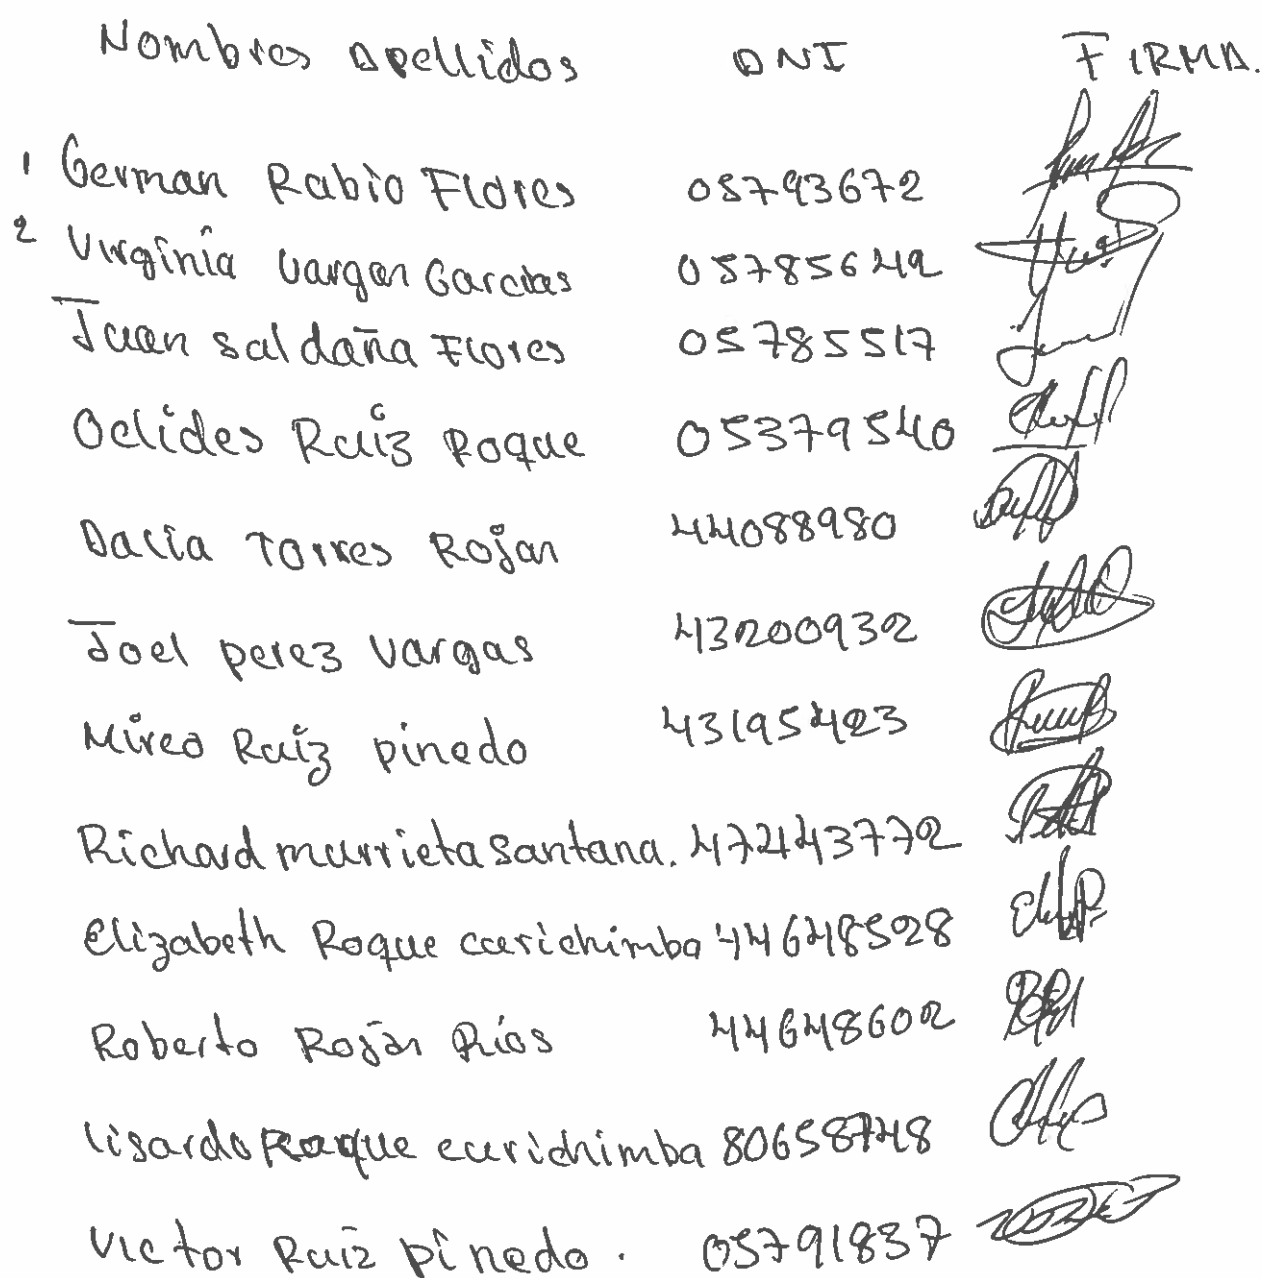 Nombres Apellidos DNI FIRMA.
1 German Rabio Flores 05793672
2 Virginia Vargas Garcias 05785642
Juan Saldaña Flores 05785517
Oclides Ruiz Roque 05379540
Dalia Torres Rojas 44088980
Joel perez vargas 43200932
Mirea Ruiz pinedo 43195423
Richard murrieta santana. 47443772
Elizabeth Roque curichimba 44648528
Roberto Rojas Ríos 44648602
lisardo Roque curichimba 80658748
Victor Ruiz pinedo. 05791837